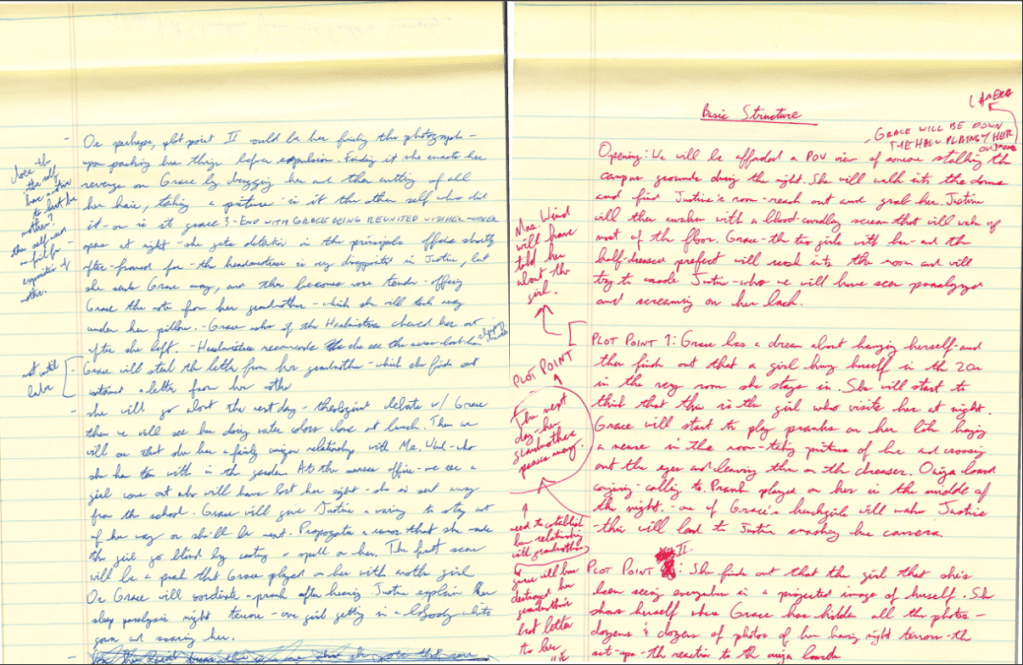 Or perhaps, plot point II could be her finding the photographs -
upon packing her things before expulsion. Finding it she enacts her
revenge on Grace by drugging her and then cutting of all
her hair, taking a picture - is it the other self who did
it - or is it grace? - END WITH GRACE BEING REUNITED WITH HER MOTHER
- opens at night - she gets detention in the principals office shortly
after - framed for - the headmistress is very disappointed in Justine, but
she sends Grace away, and then becomes more tender - offering
Grace the note from her grandmother - which she will tuck away
under her pillow. - Grace asks if the Headmistress chewed her out
after she left. - Headmistress recommends she see the nurse -
- Grace will steal the letter from her grandmother - which she finds out
instead a letter from her mother
- she will go about the next day - theological debate w/ Grace
then we will see her doing water colors alone at lunch. Then we
will see that she has a fairly unique relationship with Ms. Wind - who
she has tea with in the garden. At the nurses office - we see a
girl come out who will have lost her sight - she is sent away
from the school. Grace will give Justine a warning to stay out
of her way or she'll be next. Propagates a rumor that she made
the girl go blind by casting a spell on her. The first scene
will be a prank that Grace played on her with another girl
Or Grace will - prank after hearing Justine explain her
sleep paralysis night terrors - one girl getting in a bloody white
gown and scaring her.
Does the
other self
have a
to hurt her
mother?
the self
exposition of
mother.
not until
later
Basic Structure
CAMERA
GRACE WILL BE DOWN
THE HALL PLAYING HER
Opening: We will be afforded a POV view of someone stalking the
campus grounds during the night. She will walk into the dorms
and find Justine's room - reach out and grab her. Justine
will then awaken with a blood-curdling scream that will wake up
most of the floor. Grace - the two girls with her - and the
half-dressed prefect will rush into the room and will
try to console Justine - who we will have seen paralyzed
and screaming on her back.
Ms. Wind
will have
told her
about the
girl.
PLOT POINT 1: Grace has a dream about hanging herself - and
then finds out that a girl hung herself in the 20s
in the very room she stays in. She will start to
think that this is the girl who visits her at night.
Grace will start to play pranks on her like hanging
a noose in the room - taking pictures of her and crossing
out the eyes and leaving them on the dresser. Ouija board
conjuring - calling to. Prank played on her in the middle of
the night. - one of Grace's henchgirls will wake Justine
- this will lead to Justine smashing her camera.
PLOT POINT
The next
day - her
grandmother
passes away.
need to establish
her relationship
with grandmother
grace will have
destroyed her
grandmother's
last letter
to her
PLOT POINT II: She finds out that the girl that she's
been seeing everywhere is a projected image of herself. She
shows herself where Grace has hidden all the photos -
dozens & dozens of photos of her having night terrors - the
set-ups - the reaction to the ouija board